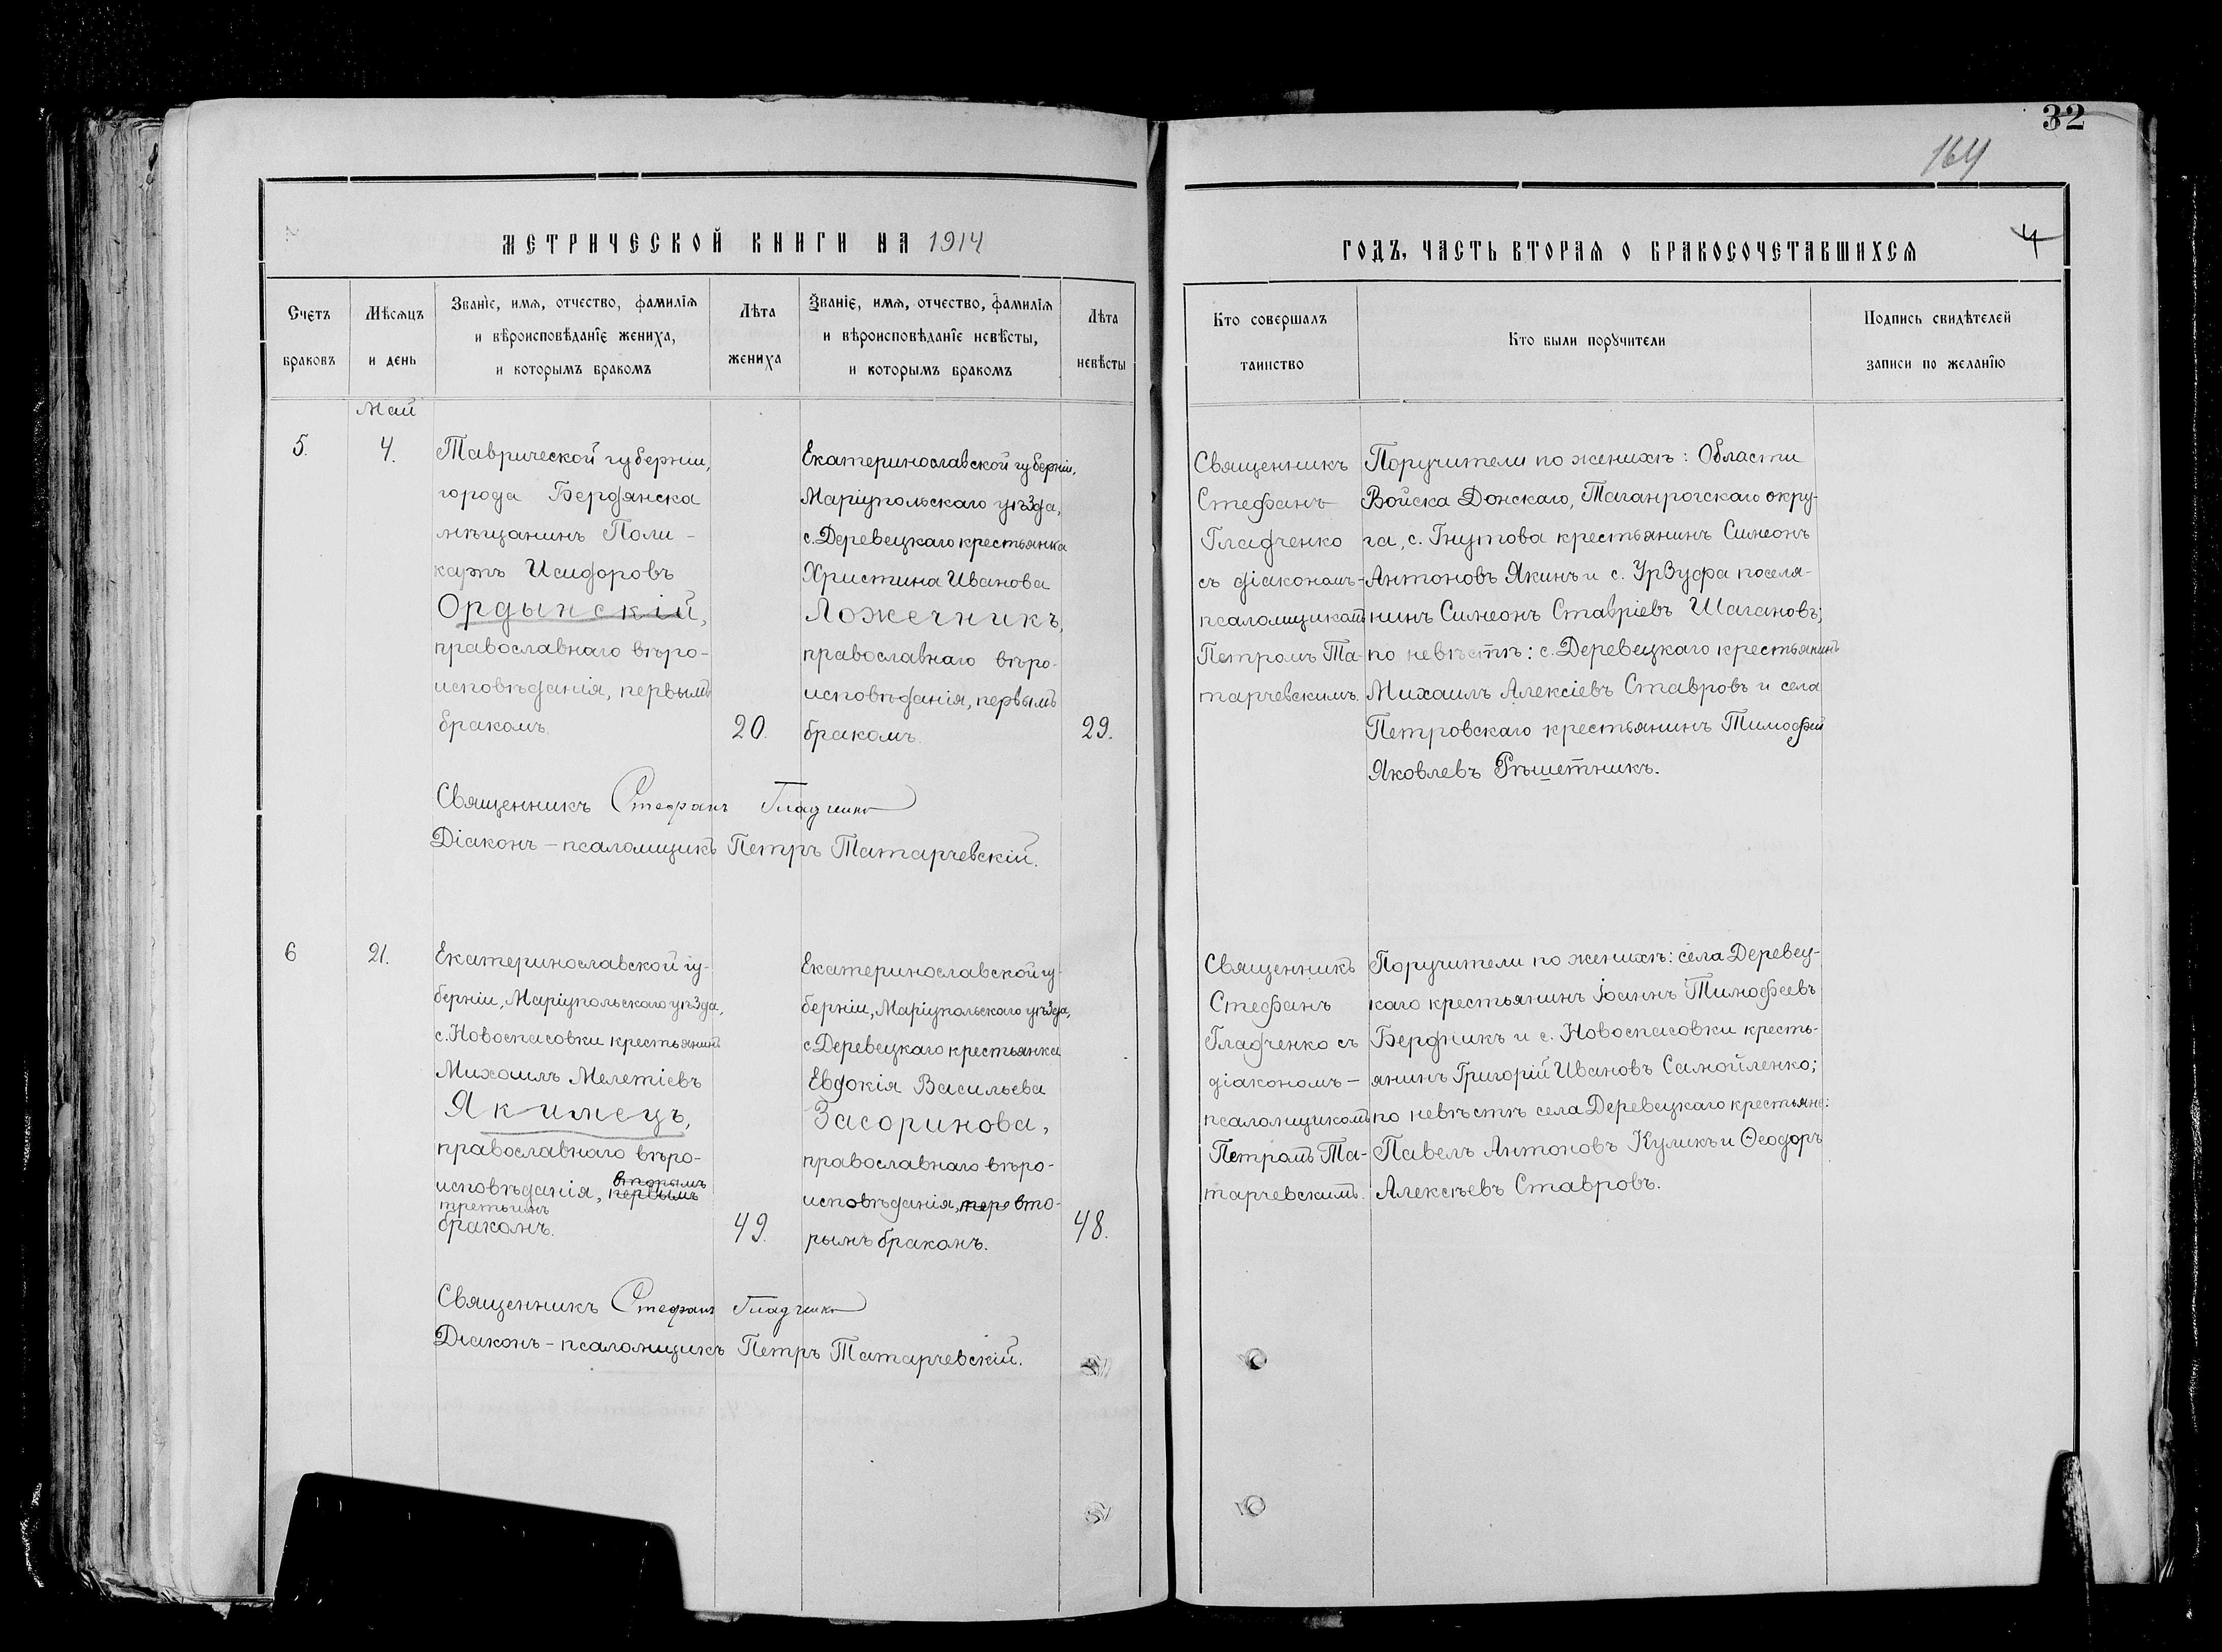 32
164
МЕТРИЧЕСКОЙ КНИГИ НА 1914
ГОДЪ, ЧАСТЬ ВТОРАЯ О БРАКОСОЧЕТАВШИХСЯ
4
Счетъ браковъ
Мѣсяцъ и день
Званїе, имя, отчество, фамилїя
и вѣроисповѣданїе жениха,
и которымъ бракомъ
Лѣта жениха
Званїе, имя, отчество, фамилїя
и вѣроисповѣданїе невѣсты,
и которымъ бракомъ
Лѣта невѣсты
Кто совершалъ
таинство
Кто были порꙋчители
Подпись свидѣтелей
записи по желанїю
Май
5.
4.
Таврической губерніи,
города Бердянска
мѣщанинъ Поли-
карпъ Исидоровъ
Ордынскій,
православнаго вѣро-
исповѣданія, первымъ
бракомъ.
20.
Екатеринославской губерніи,
Маріупольскаго уѣзда,
с. Деревецкаго крестьянка
Христина Иванова
Ложечникъ,
православнаго вѣро-
исповѣданія, первымъ
бракомъ.
29.
Священникъ
Стефанъ
Гладченко
съ діакономъ-
псаломщикомъ
Петромъ Та-
тарчевскимъ.
Поручители по женихѣ: Области
Войска Донскаго, Таганрогскаго окру-
га, с. Гнутова крестьянинъ Симеонъ
Антоновъ Якинъ и с. Урзуфа поселя-
нинъ Симеонъ Ставріевъ Шагановъ;
по невѣстѣ: с. Деревецкаго крестьянинъ
Михаилъ Алексіевъ Ставровъ и села
Петровскаго крестьянинъ Тимофей
Яковлевъ Рѣшетникъ.
Священникъ Стефанъ Гладченко
Діаконъ-псаломщикъ Петръ Татарчевскій.
6
21.
Екатеринославской гу-
берніи, Маріупольскаго уѣзда,
с. Новоспасовки крестьянинъ
Михаилъ Мелетіевъ
Якимецъ,
православнаго вѣро-
вторымъ
исповѣданія, первымъ
третьимъ
бракомъ.
49.
Екатеринославской гу-
берніи, Маріупольскаго уѣзда,
с. Деревецкаго крестьянка
Евдокія Васильева
Засоринова,
православнаго вѣро-
исповѣданія, пере вто-
рымъ бракомъ.
48.
Священникъ
Стефанъ
Гладченко съ
діакономъ-
псаломщикомъ
Петромъ Та-
тарчевскимъ.
Поручители по женихѣ: села Деревец-
каго крестьянинъ Іоаннъ Тимофеевъ
Бердникъ и с. Новоспасовки кресть-
янинъ Григорій Ивановъ Самойленко;
по невѣстѣ села Деревецкаго крестьяне:
Павелъ Антоновъ Куликъ и Ѳеодоръ
Алексѣевъ Ставровъ.
Священникъ Стефанъ Гладченко
Діаконъ-псаломщикъ Петръ Татарчевскій.